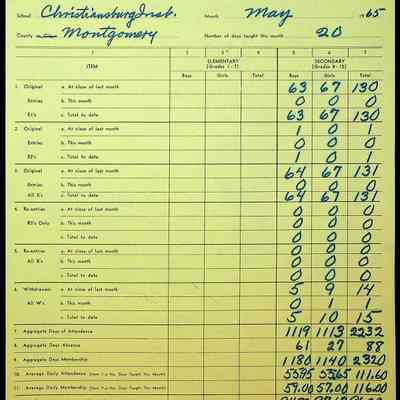 School Christiansburg Inst. Month May 1965
County Montgomery Number of days taught this month 20
1 2 3 4 5 6 7
ITEM ELEMENTARY (Grades 1-7) SECONDARY (Grades 8-12)
Boys Girls Total Boys Girls Total
1. Original a. At close of last month 63 67 130
Entries b. This month 0 0 0
E1's c. Total to date 63 67 130
2. Original a. At close of last month 1 0 1
Entries b. This month 0 0 0
E2's c. Total to date 1 0 1
3. Original a. At close of last month 64 67 131
Entries b. This month 0 0 0
All E's c. Total to date 64 67 131
4. Re-entries a. At close of last month 0 0 0
R3's Only b. This month 0 0 0
c. Total to date 0 0 0
5. Re-entries a. At close of last month 0 0 0
All R's b. This month 0 0 0
c. Total to date 0 0 0
6. Withdrawals a. At close of last month 5 9 14
All W's b. This month 0 1 1
c. Total to date 5 10 15
7. Aggregate Days of Attendance 1119 1113 2232
8. Aggregate Days Absence 61 27 88
9. Aggregate Days Membership 1180 1140 2320
10. Average Daily Attendance 53.95 53.65 111.60
11. Average Daily Membership 59.00 57.00 116.00